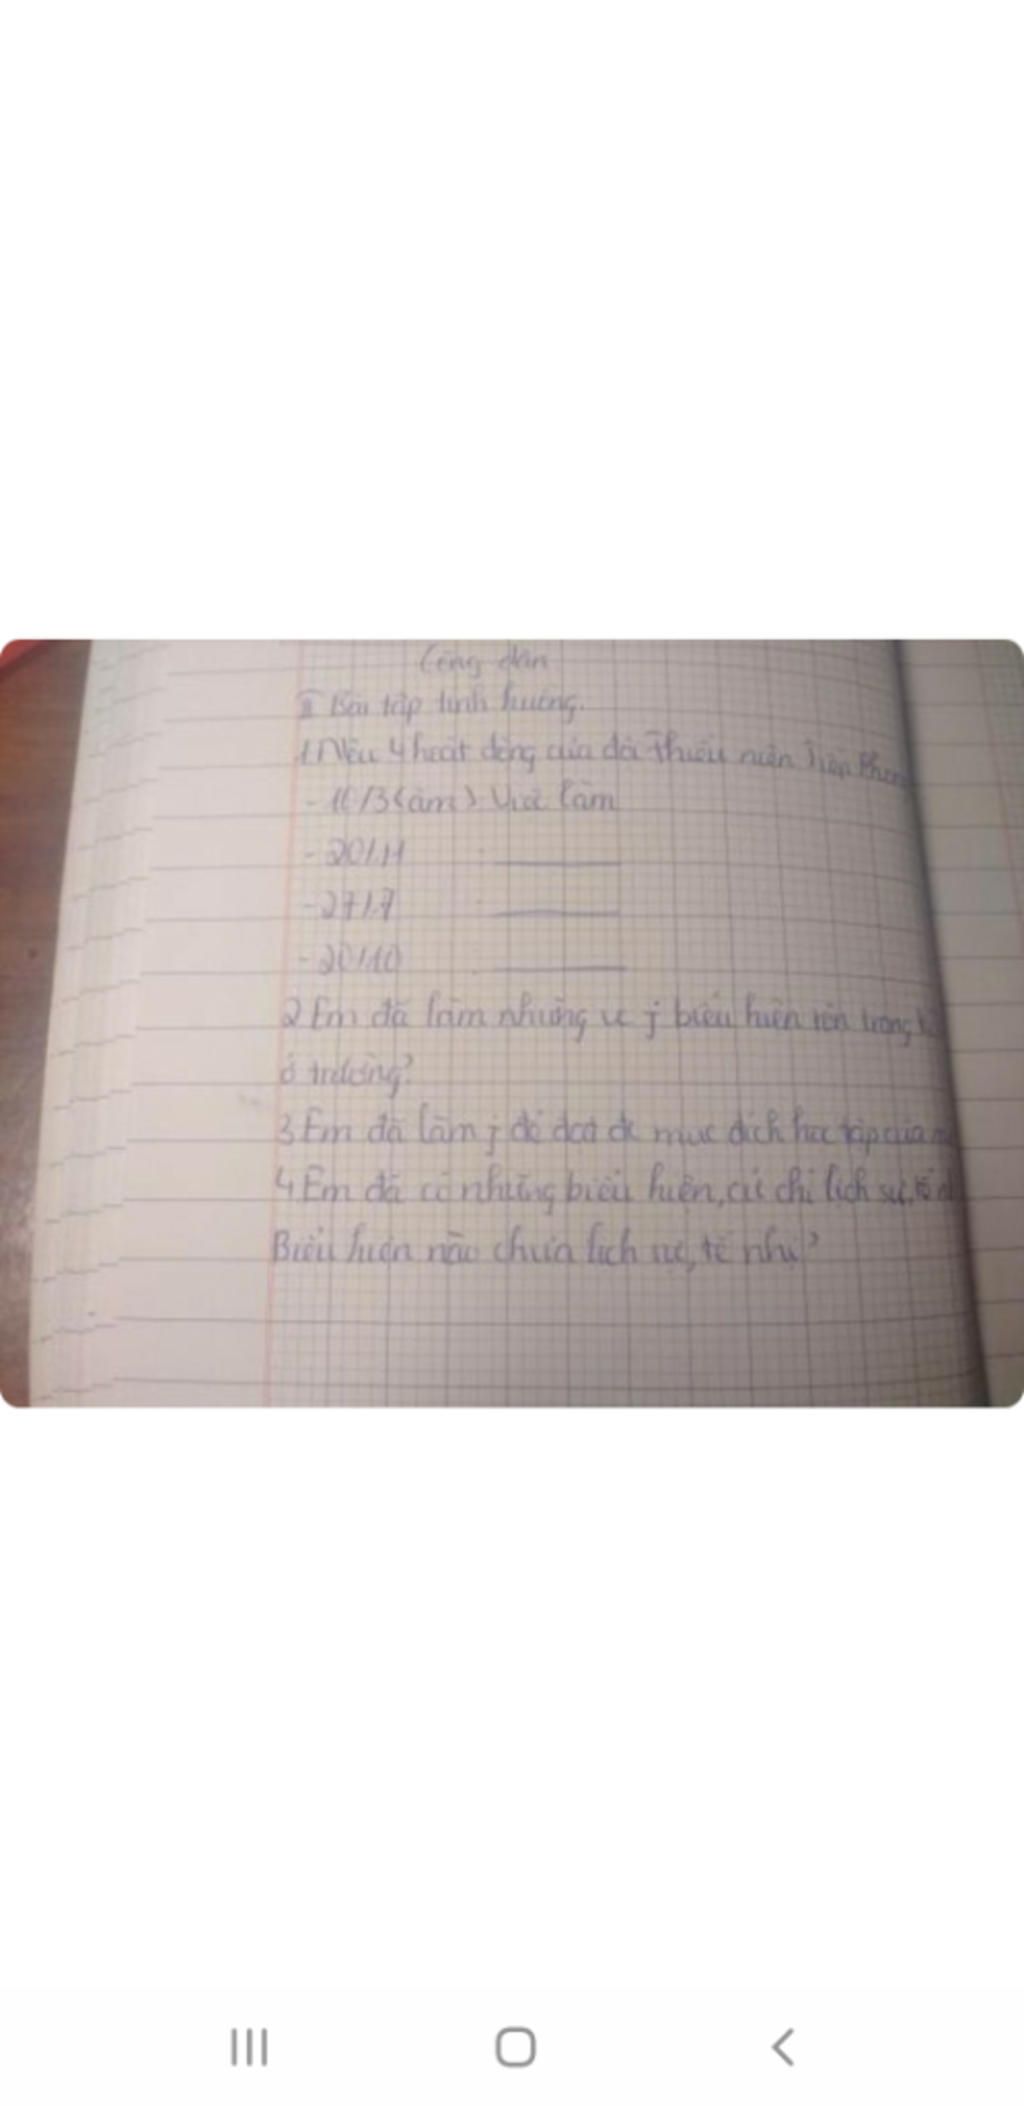 Công dân
II Bài tập tình huống.
1. Nêu 4 hoạt động của đội Thiếu niên Tiền Phong
- 10/3 (âm): Việc làm
- 20/11 :
- 27/7 :
- 20/10 :
2 Em đã làm những vc j biểu hiện tôn trọng
ở trường?
3 Em đã làm j để đạt đc mục đích học tập của
4 Em đã có những biểu hiện, cử chỉ lịch sự, tế
Biểu hiện nào chưa lịch sự, tế nhị?